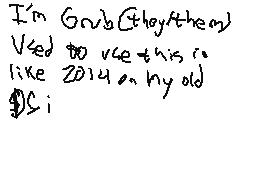 I'm Grub (they/them)
Used to use this in
like 2014 on my old
DSi